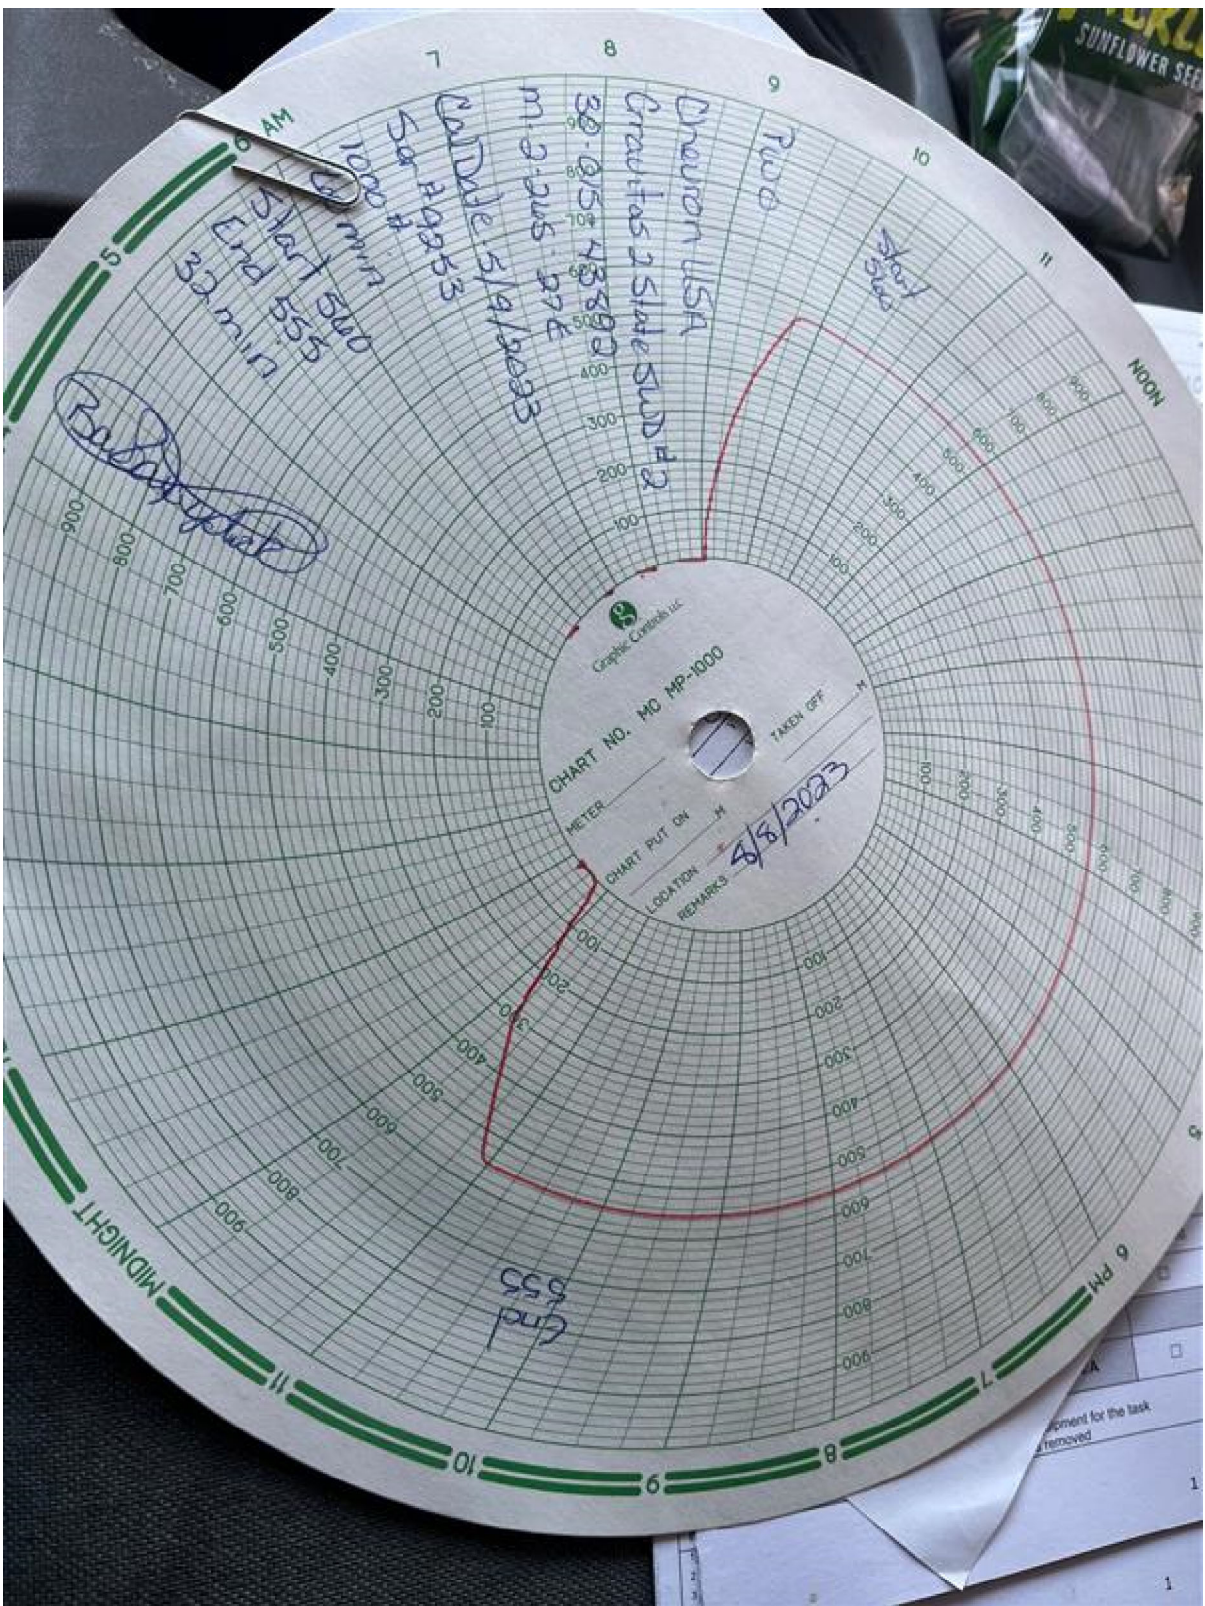 PICKLE
SUNFLOWER SEE
6 AM
7
8
9
10
11
NOON
5
6 PM
7
8
9
10
11
MIDNIGHT
5
PWO
Chevron USA
Gravitas 2 State SWD #2
30-015-43892
M-2-24S-27E
Cal Date 5/9/2023
Ser #9253
1000 #
min
Start 560
End 555
32 min
Start
560
End
555
100 200 300 400 500 600 700 800 900
100 200 300 400 500 600 700 800 900
100 200 300 400 500 600 700 800 900
100 200 300 400 500 600 700 800 900
100 200 300 400 500 600 700 800 900
100 200 300 400 500 600 700 800
g
Graphic Controls LLC
CHART NO. MC MP-1000
METER
CHART PUT ON M
TAKEN OFF M
LOCATION
REMARKS 8/8/2023
pment for the task
removed
1
1